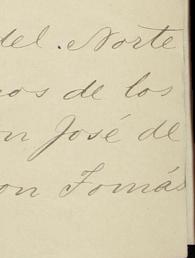 del Norte
nos de los
on José de
on Tomás